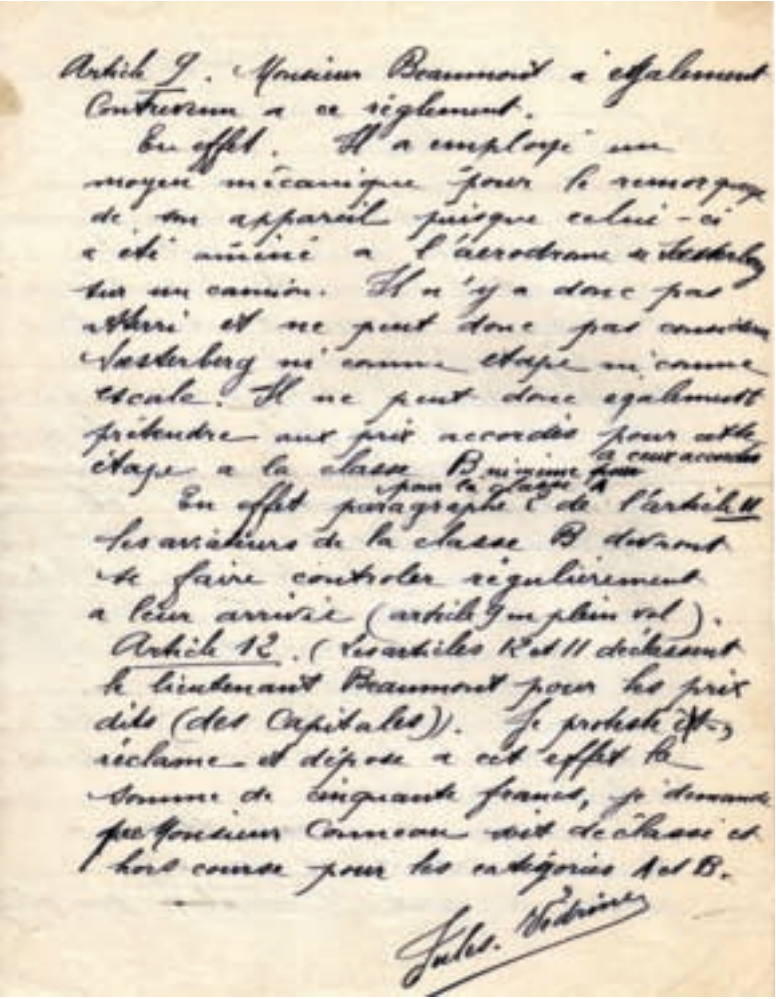 Article 9. Monsieur Beaumont a également
Contrevenu a ce règlement.
En effet. Il a employé un
moyen mécanique pour le remorquage
de son appareil puisque celui-ci
a été améné a l'aerodrome de Sosterberg
sur un camion. Il n'y a donc pas
atterri et ne peut donc pas considérer
Sosterberg ni comme etape ni comme
escale. Il ne peut donc egalement
prétendre aux prix accordés pour cette
étape a la classe B ni même pour
a ceux accordés
pour la classe A
En effet paragraphe C de l'article 11
les aviateurs de la classe B devront
se faire controler régulièrement
a leur arrivée (article 9 en plein vol).
Article 12. (Les articles 12 et 11 déclassent
le lieutenant Beaumont pour les prix
dits (des Capitales)). Je proteste
réclame et dépose a cet effet la
somme de cinquante francs, je demande
que Monsieur Conneau soit déclassé et
hors course pour les catégories A et B.
Jules. Védrines